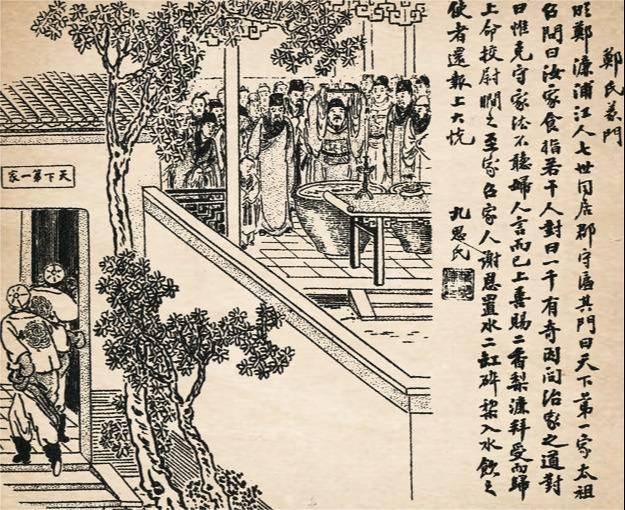 鄭氏義門
明鄭濂浦江人七世同居郡守區其門曰天下第一家太祖
召問曰汝家食指若干人對曰一千有奇因問治家之道對
曰惟克守家法不聽婦人言而已上喜賜二香梨濂拜受而歸
上命校尉瞯之至家召家人謝恩置水二缸碎梨入水飲之
使者還報上大悅
九思氏
天下第一家